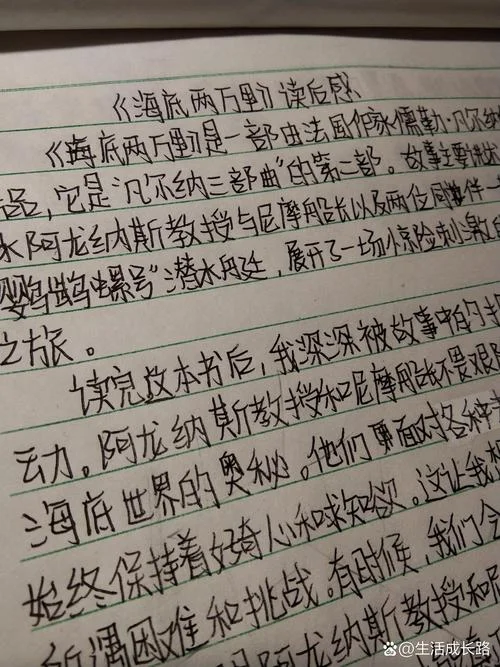 《海底两万里》读后感
《海底两万里》是一部由法国作家儒勒·凡尔纳
品，它是“凡尔纳三部曲”的第二部。故事主要讲述
阿龙纳斯教授与尼摩船长以及两位同伴一
鹦鹉螺号”潜水舟廷，展开了一场惊险刺激
之旅。
读完这本书后，我深深被故事中的
动。阿龙纳斯教授和尼摩船长不畏艰
海底世界的奥秘。他们面对各种
始终保持着好奇心和求知欲。这让我
所遇困难和挑战。有时候，我们会
阿龙纳斯教授和
@生活成长路